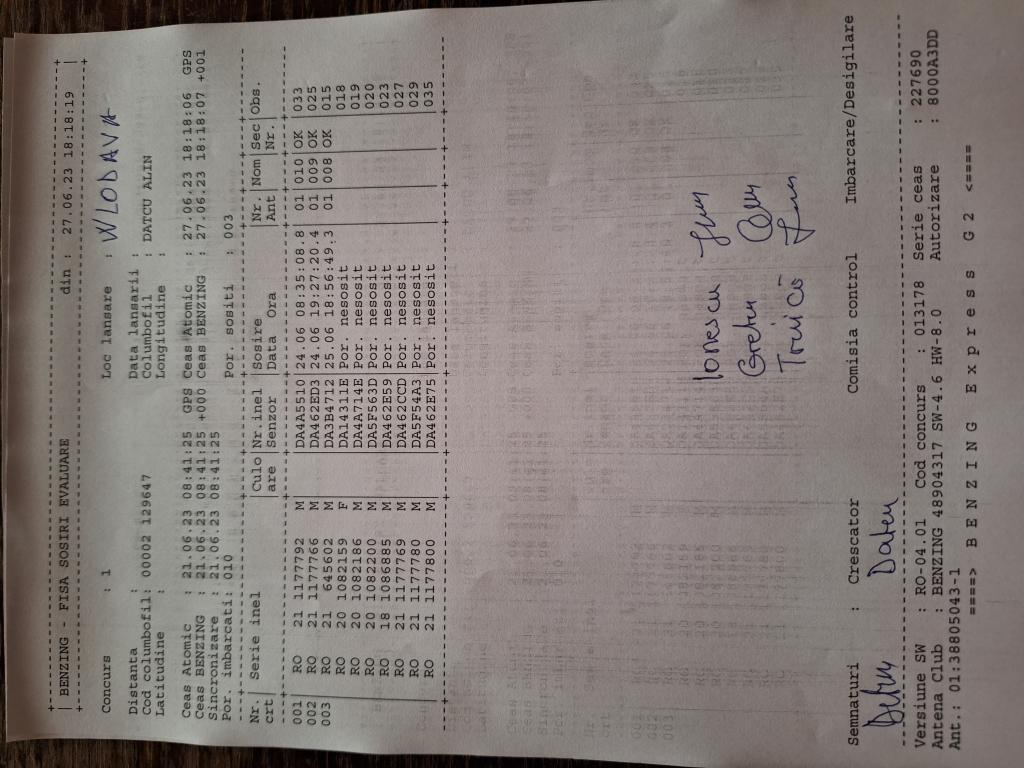 +-----------------------------------------------------------------------------+
| BENZING - FISA SOSIRI EVALUARE din : 27.06.23 18:18:19 |
+-----------------------------------------------------------------------------+
Concurs : 1 Loc lansare : WLODAVA
Distanta : Data lansarii :
Cod columbofil: 00002 129647 Columbofil : DATCU ALIN
Latitudine : Longitudine :
Ceas Atomic : 21.06.23 08:41:25 GPS Ceas Atomic : 27.06.23 18:18:06 GPS
Ceas BENZING : 21.06.23 08:41:25 +000 Ceas BENZING : 27.06.23 18:18:07 +001
Sincronizare : 21.06.23 08:41:25
Por. imbarcati: 010 Por. sositi : 003
Nr.| Serie inel |Culo |Nr.inel |Sosire |Nr. |Nom |Sec |Obs.
crt |are |Senzor |Data Ora |Ant | |Nr. |
001 RO 21 1177792 M |DA4A5510 |24.06 08:35:08.8 01 |010 |OK |033
002 RO 21 1177766 M |DA462ED3 |24.06 19:27:20.4 01 |009 |OK |025
003 RO 21 645602 M |DA3B4712 |25.06 18:56:49.3 01 |008 |OK |015
RO 20 1082159 F |DA14311E |Por. nesosit | | | |018
RO 20 1082186 M |DA4A714E |Por. nesosit | | | |019
RO 20 1082200 M |DA5F563D |Por. nesosit | | | |020
RO 18 1086885 M |DA462E59 |Por. nesosit | | | |023
RO 21 1177769 M |DA462CCD |Por. nesosit | | | |027
RO 21 1177780 M |DA5F54A3 |Por. nesosit | | | |029
RO 21 1177800 M |DA462E75 |Por. nesosit | | | |035
Ionescu
Cretu
Semnaturi : Crescator Comisia control Imbarcare/Desigilare
Versiune SW : RO-04.01 Cod concurs : 013178 Serie ceas : 227690
Antena Club : BENZING 48904317 SW-4.6 HW-8.0 Autorizare : 8000A3DD
Ant.: 01:38805043-1
====> B E N Z I N G E x p r e s s G 2 <====